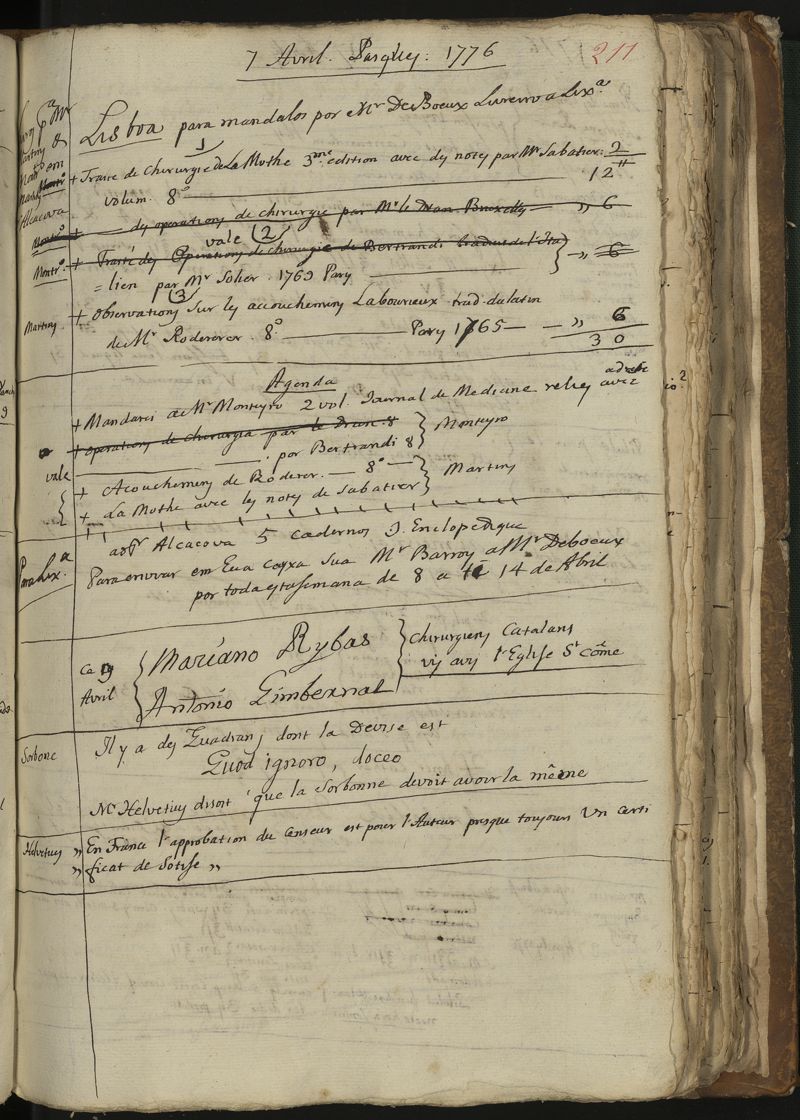 7 Avril. Pasques: 1776
211
Lisboa para mandalos por Mr. DeBoeux Livreiro a Lixa
1
+ Traite de Chirurgie de La Mothe 3me. edition avec des notes par Mr. Sabatier. 2
volum. 8o 12 "
Montro. + des operations de chirurgie par Mr. le Dran Bruxelles „ 6
vale 2
Montro. + Traité des Operations de chirurgie de Bertrandi traduit de l'Ita
= lien par Mr. Solier. 1769 Pary } — „ 6
3
Martins. + Observations sur les accouchemens Labourieux trad. du latin
de Mr. Roderer. 8o Pary 1765 — „ 6
30
Agenda
+ Mandarei a Mr. Monteyro 2 vol. Journal de Medicine relies avec
+ operations de chirurgia par le Dran 8 } Monteyro
vale — . por Bertrandi 8
+ Acouchemens de Roderer. — 8o } Martins
+ La Mothe avec les notes de Sabatier
Para Lixa. Alcacova 5 cadernos J. Enclopedique
Para enviar em Sua cayxa Sua Mr. Barroy a Mr. Deboeux
por toda esta semana de 8 a 14 de Abril
Ce 9
Avril
{ Mariano Rybas
Antonio Gimbernat } Chirurgiens Catalans
vis avis l'Eglise St. Côme
Sorbonc Il y a des Quadrans dont la Devise est
Quod ignoro, doceo
Mr. Helvetius disoit que la Sorbonne devoit avoir la même
Helvetius „ En France l'approbation du Censeur est pour l'Auteur presque toujours Un Certi
„ ficat de Sotise „